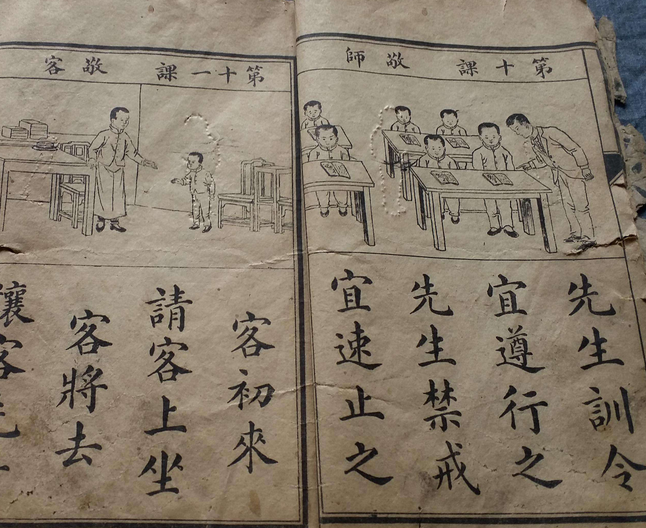 第十課 敬師
先生訓令
宜遵行之
先生禁戒
宜速止之
第十一課 敬客
客初來
請客上坐
客將去
讓客先